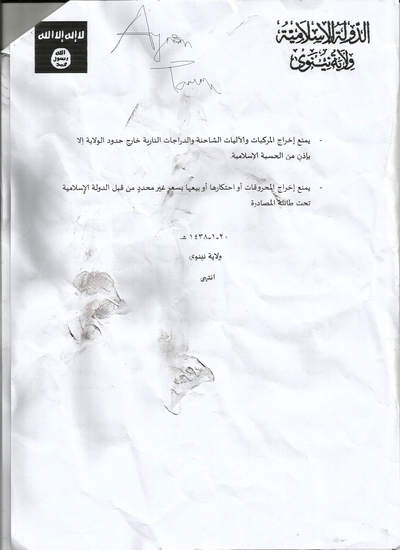 الدولة الإسلامية
ولاية نينوى
لا إله إلا الله
الله
رسول
محمد
- يمنع إخراج المركبات والآليات الشاحنة والدراجات النارية خارج حدود الولاية إلا
بإذن من الحسبة الإسلامية.
- يمنع إخراج المحروقات أو احتكارها أو بيعها بسعر غير محدد من قبل الدولة الإسلامية
تحت طائلة المصادرة
٢٠-١-١٤٣٨ هـ
ولاية نينوى
انتهى